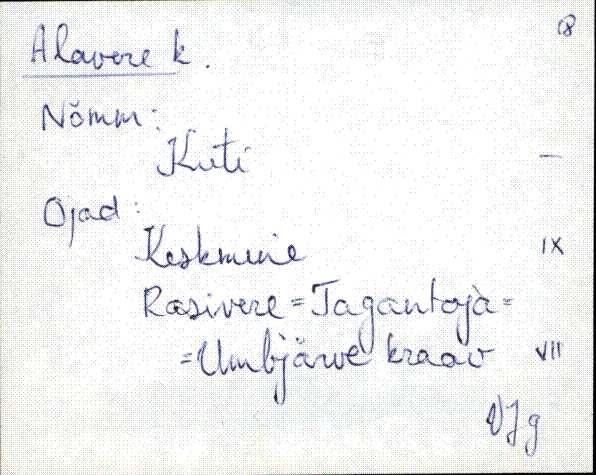 18
Alavere k.
Nõmm:
Kuti —
Ojad:
Keskmine IX
Rasivere = Tagantoja =
= Umbjärve kraav VII
VJg